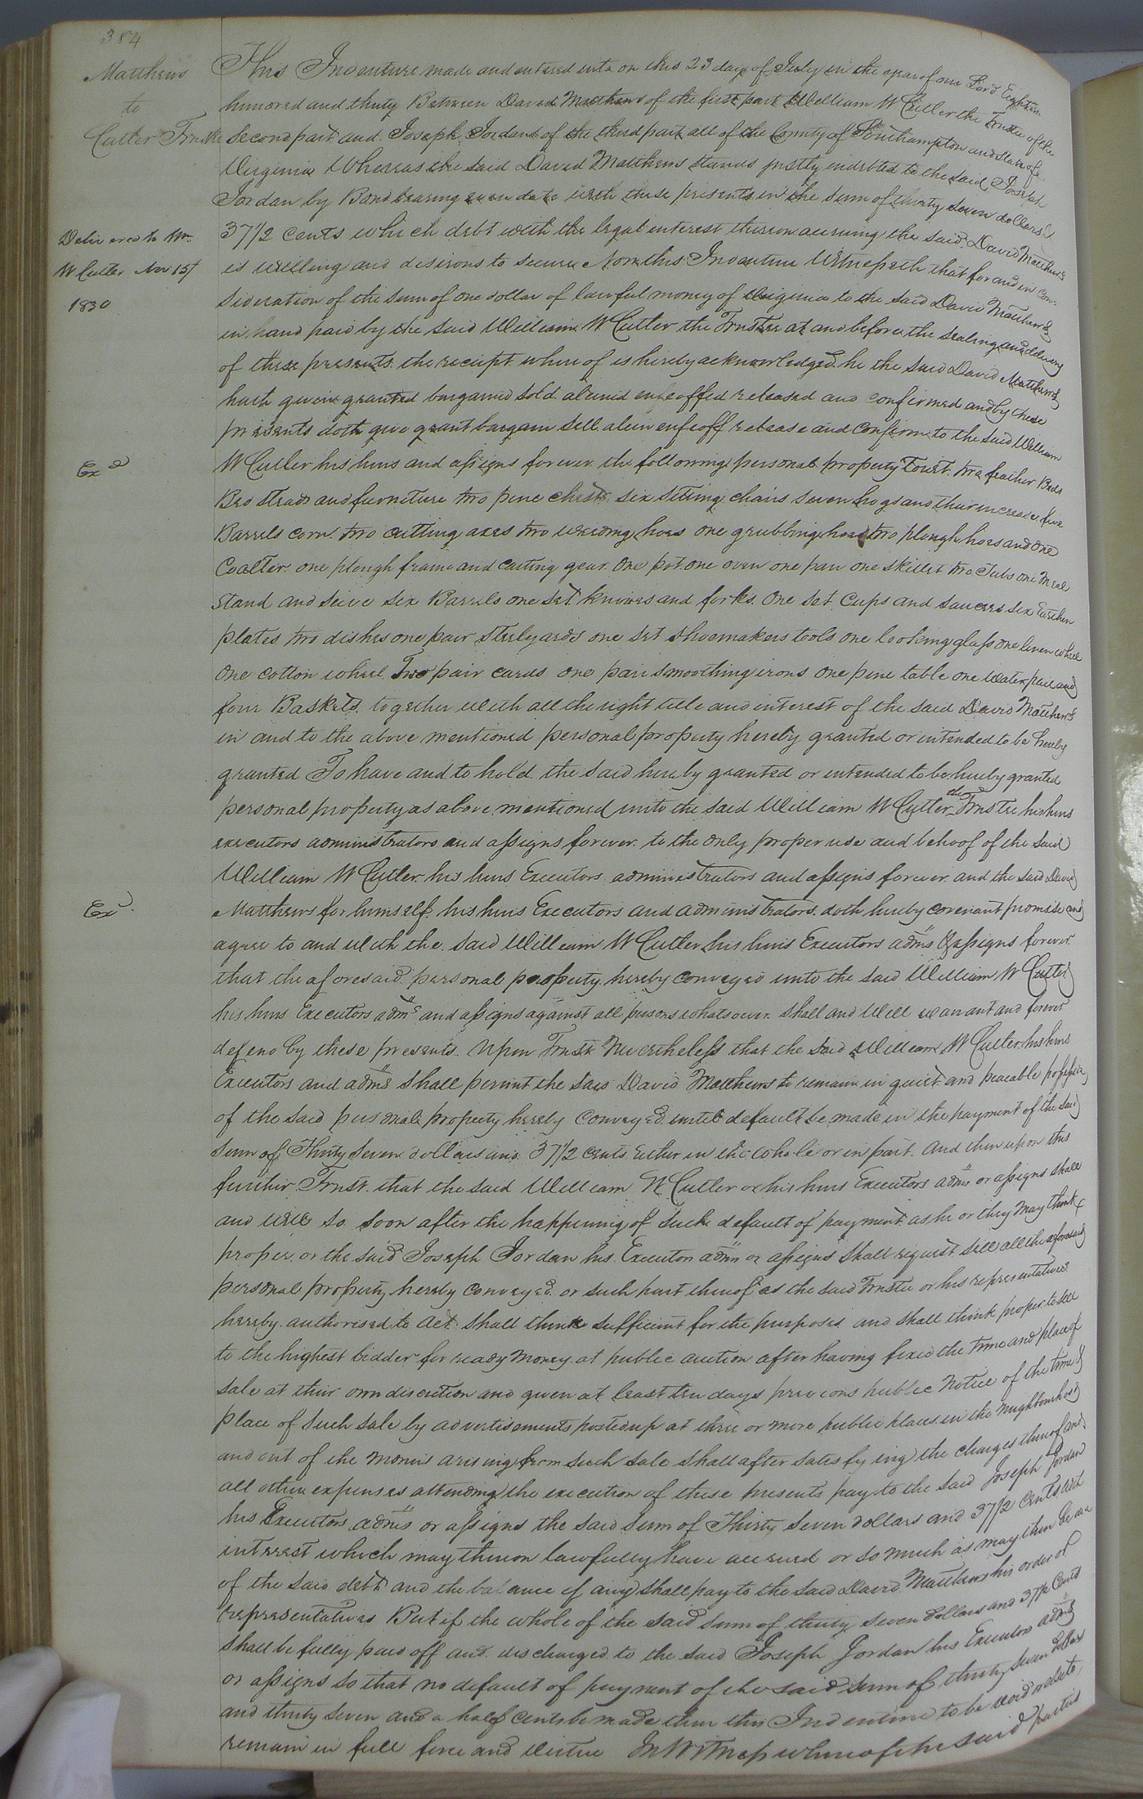 384
Matthews
to
Cutler Trustee
Delivered to Wm.
W Cutler Nov 15t
1830
Exd
Exd
This Indenture made and entered into on this 23 day of July in the year of our Lord Eighteen
hundred and thirty Between David Matthews of the first part William W Cutler the Trustee of the
Second part and Joseph Jordan of the third part all of the County of Southampton and State of
Virginia Whereas the said David Matthews stands justly indebted to the said Joseph
Jordan by Bond bearing even date with these presents in the sum of thirty seven dollars &
37 1/2 cents which debt with the legal interest thereon accruing the said David Matthews
is willing and desirous to secure Now this Indenture Witnesseth that for and in con
sideration of the sum of one dollar of lawful money of Virginia to the said David Matthews
in hand paid by the said William W Cutler the Trustee at and before the sealing and delivery
of these presents the receipt whereof is hereby acknowledged he the said David Matthews
hath given granted bargained sold aliened enfeoffed released and confirmed and by these
presents doth give grant bargain sell alien enfeoff release and confirm to the said William
W Cutler his heirs and assigns forever the following personal property Towit. two feather Beds
Bedsteads and furniture two pine chests six sitting chairs seven hogs and their increase five
Barrels corn two cutting axes two weeding hoes one grubbing hoe two plough hoes and one
Coalter one plough frame and carting gear One pot one oven one pan one skillet two Tubs one Meal
Stand and seive six Barrels one set knives and forks. One Set Cups and saucers six Earthen
plates two dishes one pair steelyards one set shoemakers tools one looking glass one linen wheel
One cotton wheel Two pair cards one pair smoothing irons one pine table one water pail and
four Baskets, together with all the right title and interest of the said David Matthews
in and to the above mentioned personal property hereby granted or intended to be hereby
granted To have and to hold the said hereby granted or intended to be hereby granted
personal property as above mentioned unto the said William W Cutler the Trustee his heirs
executors administrators and assigns forever to the only proper use and behoof of the said
William W Cutler his heirs Executors administrators and assigns forever and the said David
Matthews for himself, his heirs Executors and administrators doth hereby covenant promise and
agree to and with the said William W Cutler his heirs Executors adms & assigns forever
that the aforesaid personal property hereby conveyed unto the said William W Cutler
his heirs Executors adms and assigns against all persons whatsoever shall and will warrant and forever
defend by these presents. Upon Trust Nevertheless that the said William W Cutler his heirs
Executors and adms shall permit the said David Matthews to remain in quiet and peacable possession
of the said personal property hereby conveyed until default be made in the payment of the said
sum of Thirty seven dollars and 37 1/2 cents either in the whole or in part. And then upon this
further Trust that the said William W Cutler or his heirs Executors adms or assigns shall
and will so soon after the happening of such default of payment as he or they may think
proper or the said Joseph Jordan his Executors adms or assigns shall request sell all the aforesaid
personal property hereby conveyed or such part thereof as the said Trustee or his representatives
hereby authorised to act shall think sufficient for the purposes and shall think proper to sell
to the highest bidder for ready money at public auction after having fixed the time and place of
sale at their own discretion and given at least ten days previous public notice of the time &
place of such sale by advertisements posted up at three or more public places in the neighbourhood
and out of the monies arising from such sale shall after satisfying the charges thereof and
all other expenses attending the execution of these presents pay to the said Joseph Jordan
his Executors adms or assigns the said sum of Thirty seven dollars and 37 1/2 cents with
interest which may thereon lawfully have accrued or so much as may then be due
of the said debt and the balance if any shall pay to the said David Matthews his order or
representatives But if the whole of the said sum of thirty seven dollars and 37 1/2 Cents
shall be fully paid off and discharged to the said Joseph Jordan his Executors adms
or assigns so that no default of payment of the said sum of thirty seven dollars
and thirty seven and a half cents be made then this Indenture to be void or else to
remain in full force and virtue In Witness whereof the said parties